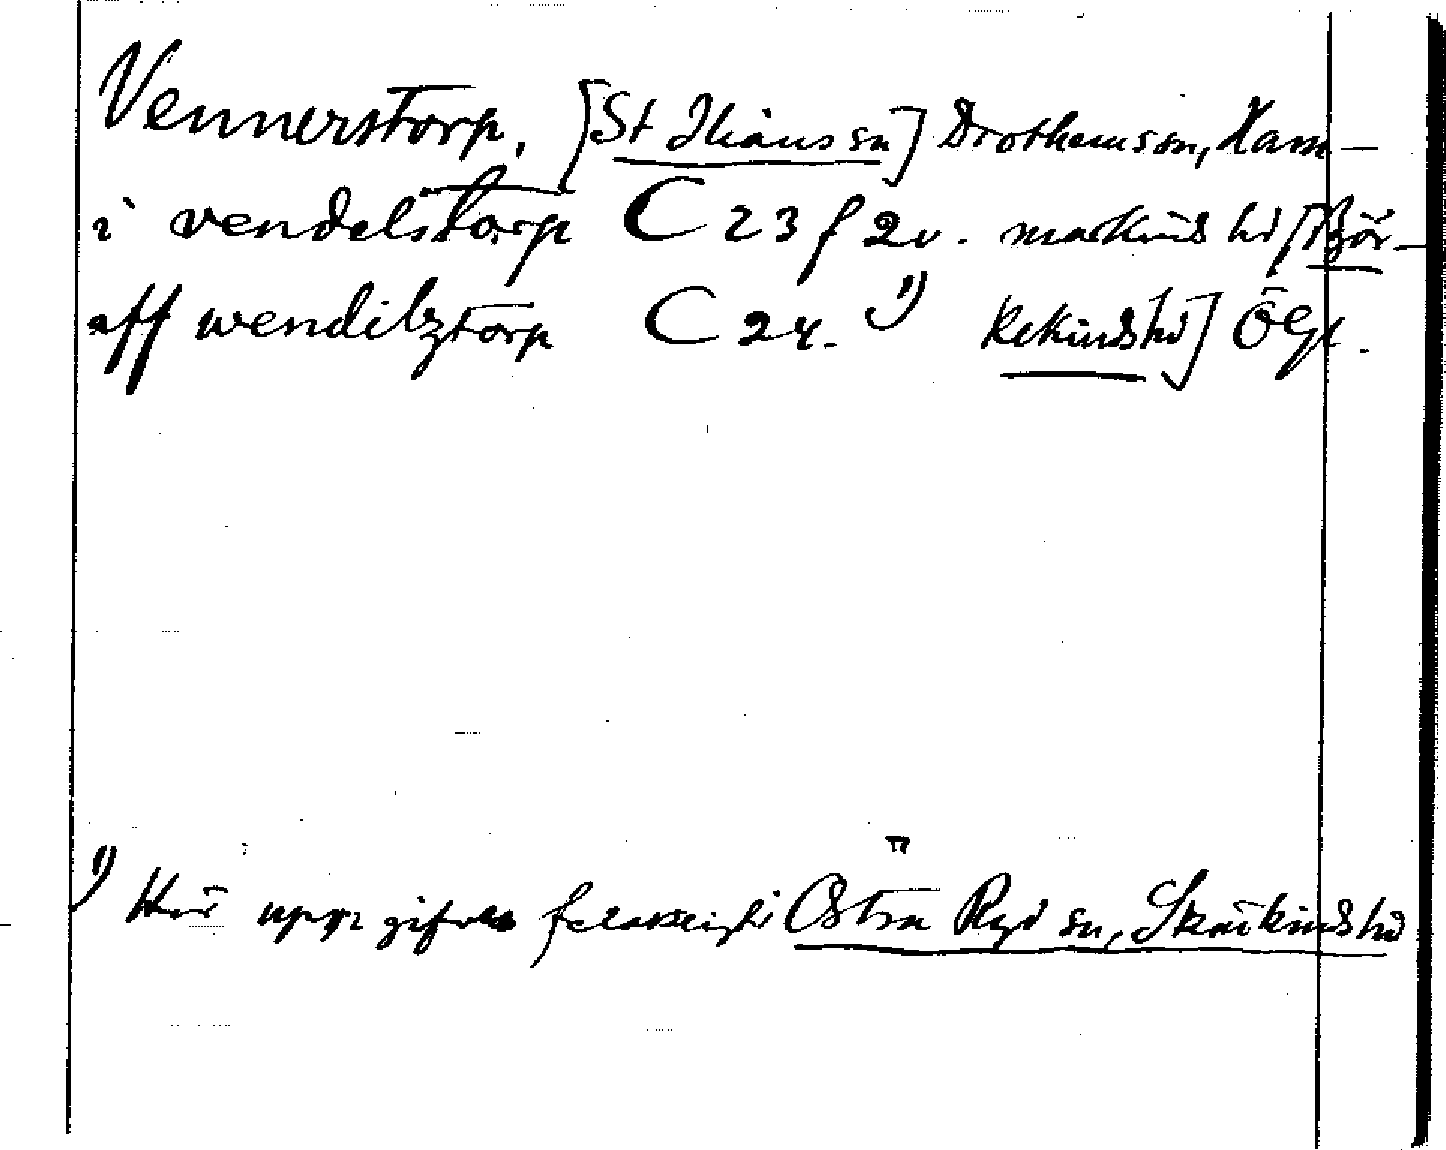 Vennerstorp, [St Ilians sn] Drothems sn, Ham-
i vendelstorp C 23 f 2v. markinds hd [Bör-
aff wendilztorp C 24. 1) kekinds hd] Ögl.
1) Här uppgifves felaktigt Östra Ryd sn, Skärkinds hd